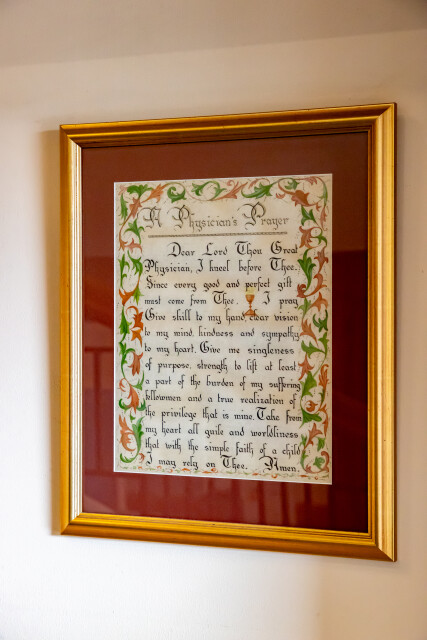 A Physician's Prayer
Dear Lord Thou Great
Physician, I kneel before Thee.
Since every good and perfect gift
must come from Thee. I pray
Give skill to my hand, clear vision
to my mind, kindness and sympathy
to my heart. Give me singleness
of purpose, strength to lift at least
a part of the burden of my suffering
fellowmen and a true realization of
the privilege that is mine. Take from
my heart all guile and worldliness
that with the simple faith of a child
I may rely on Thee. Amen.